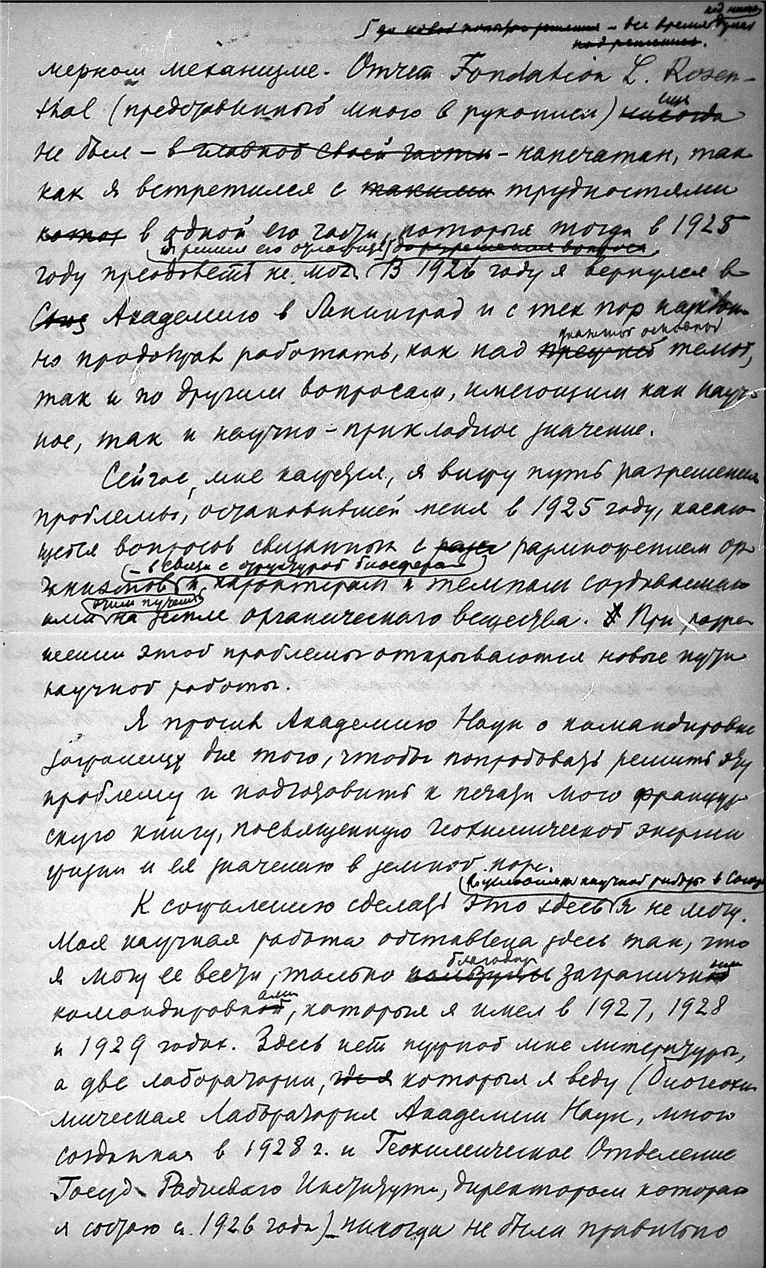 над ним
до новой попытки решения – все время думал
над решением.
мерном механизме. Отчет Fondation L. Rosen-
thal (представленный мною в рукописи) никогда еще
не был – в главной своей части – напечатан, так
как я встретился с такими трудностями
в одной его части, которыя тогда в 1925
и решил его отложить до разрешения вопроса
году преодолеть не мог. В 1926 году я вернулся в
Академию в Ленинград и с тех пор
но продолжал работать, как над прежней темой,
так и по другим вопросам, имеющим как науч-
ное, так и научно-прикладное значение.
Сейчас, мне кажется, я вижу путь разрешения
проблемы, остановившей меня в 1925 году, касаю-
щейся вопросов связанных с размножением ор-
– в связи с структурой биосферы –
ганизмов и характером и темпом создаваемаго
этим путем
ими на земле органического вещества. При разре-
шении этой проблемы открываются новые пути
научной работы.
Я просил Академию Наук о командировке
заграницу для того, чтобы попробовать решить эту
проблему и подготовить к печати мою француз-
скую книгу, посвященную геохимической энергии
жизни и ея значению в земной коре.
в условиях научной работы в Союзе
К сожалению сделать это здесь я не могу.
Моя научная работа обставлена здесь так, что
благодаря
я могу ее вести только пользуясь заграничными
командировками, которыя я имел в 1927, 1928
и 1929 годах. Здесь нет нужной мне литературы,
а две лаборатории, которыя я веду (Биогеохи-
мическая Лаборатория Академии Наук, мною
созданная в 1928 г. и Геохимическое Отделение
Госуд. Радиеваго Института, директором котораго
я состою с 1926 года) никогда не были правильно